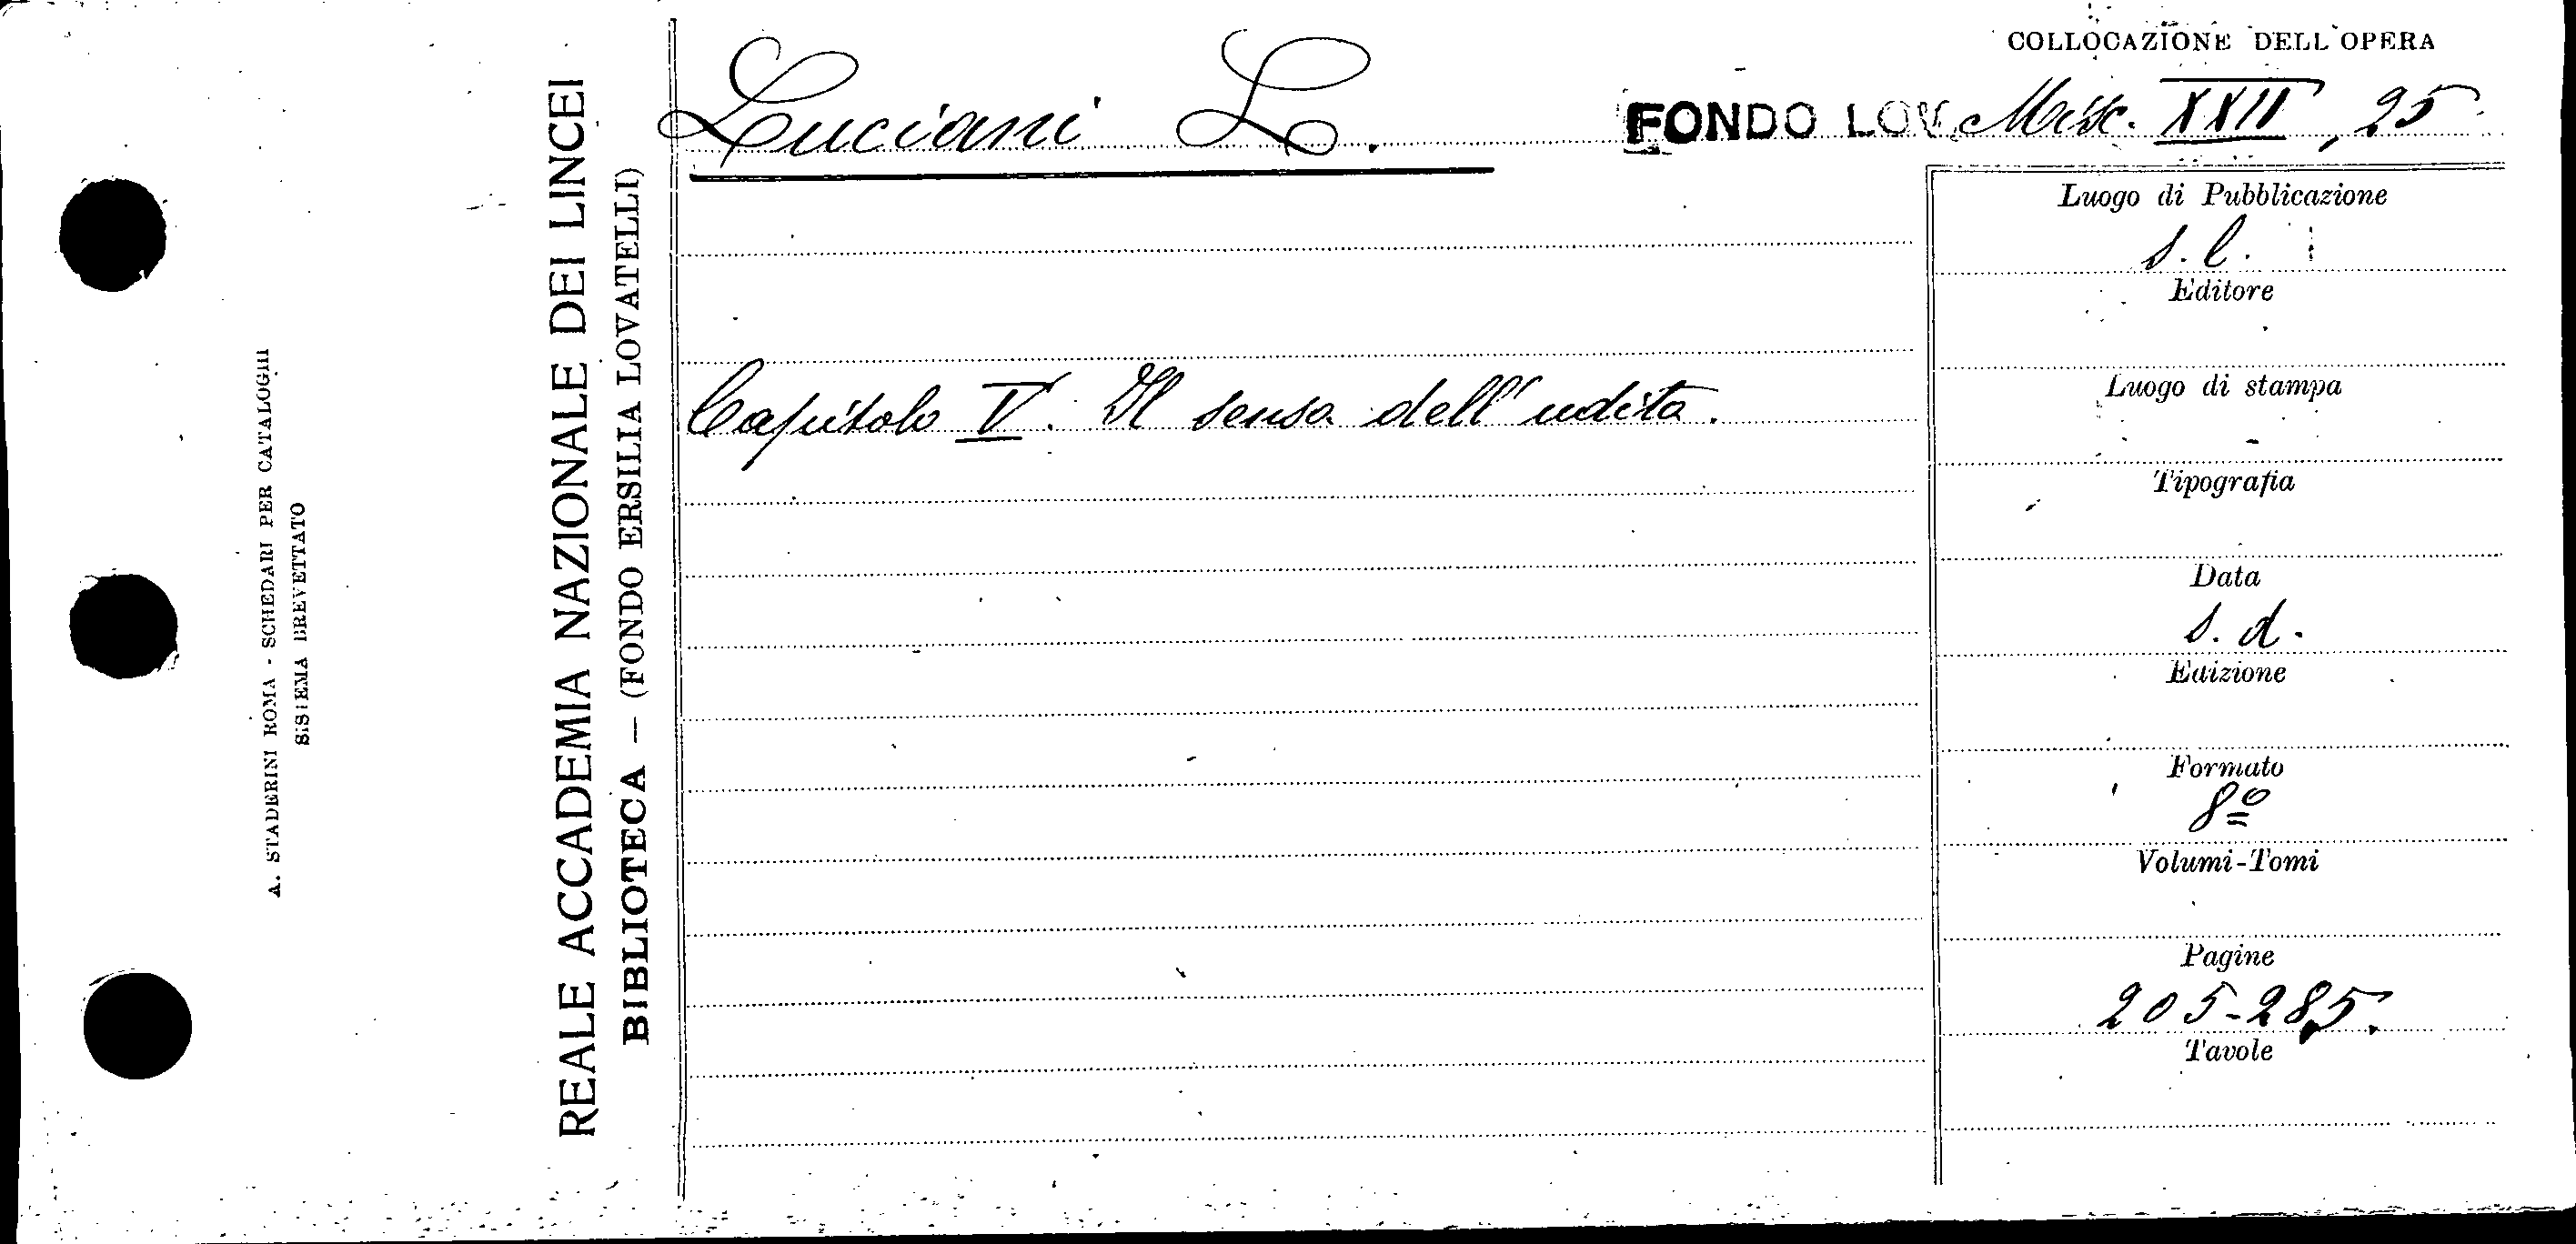 COLLOCAZIONE DELL'OPERA
Luciani L.
FONDO LOV. Misc. XXII, 25
Capitolo V. Il senso dell'udito.
Luogo di Pubblicazione
s. l.
Editore
Luogo di stampa
Tipografia
Data
s. d.
Edizione
Formato
8º
Volumi-Tomi
Pagine
205-285.
Tavole
REALE ACCADEMIA NAZIONALE DEI LINCEI
BIBLIOTECA — (FONDO ERSILIA LOVATELLI)
A. STADERINI ROMA - SCHEDARI PER CATALOGHI
SISTEMA BREVETTATO